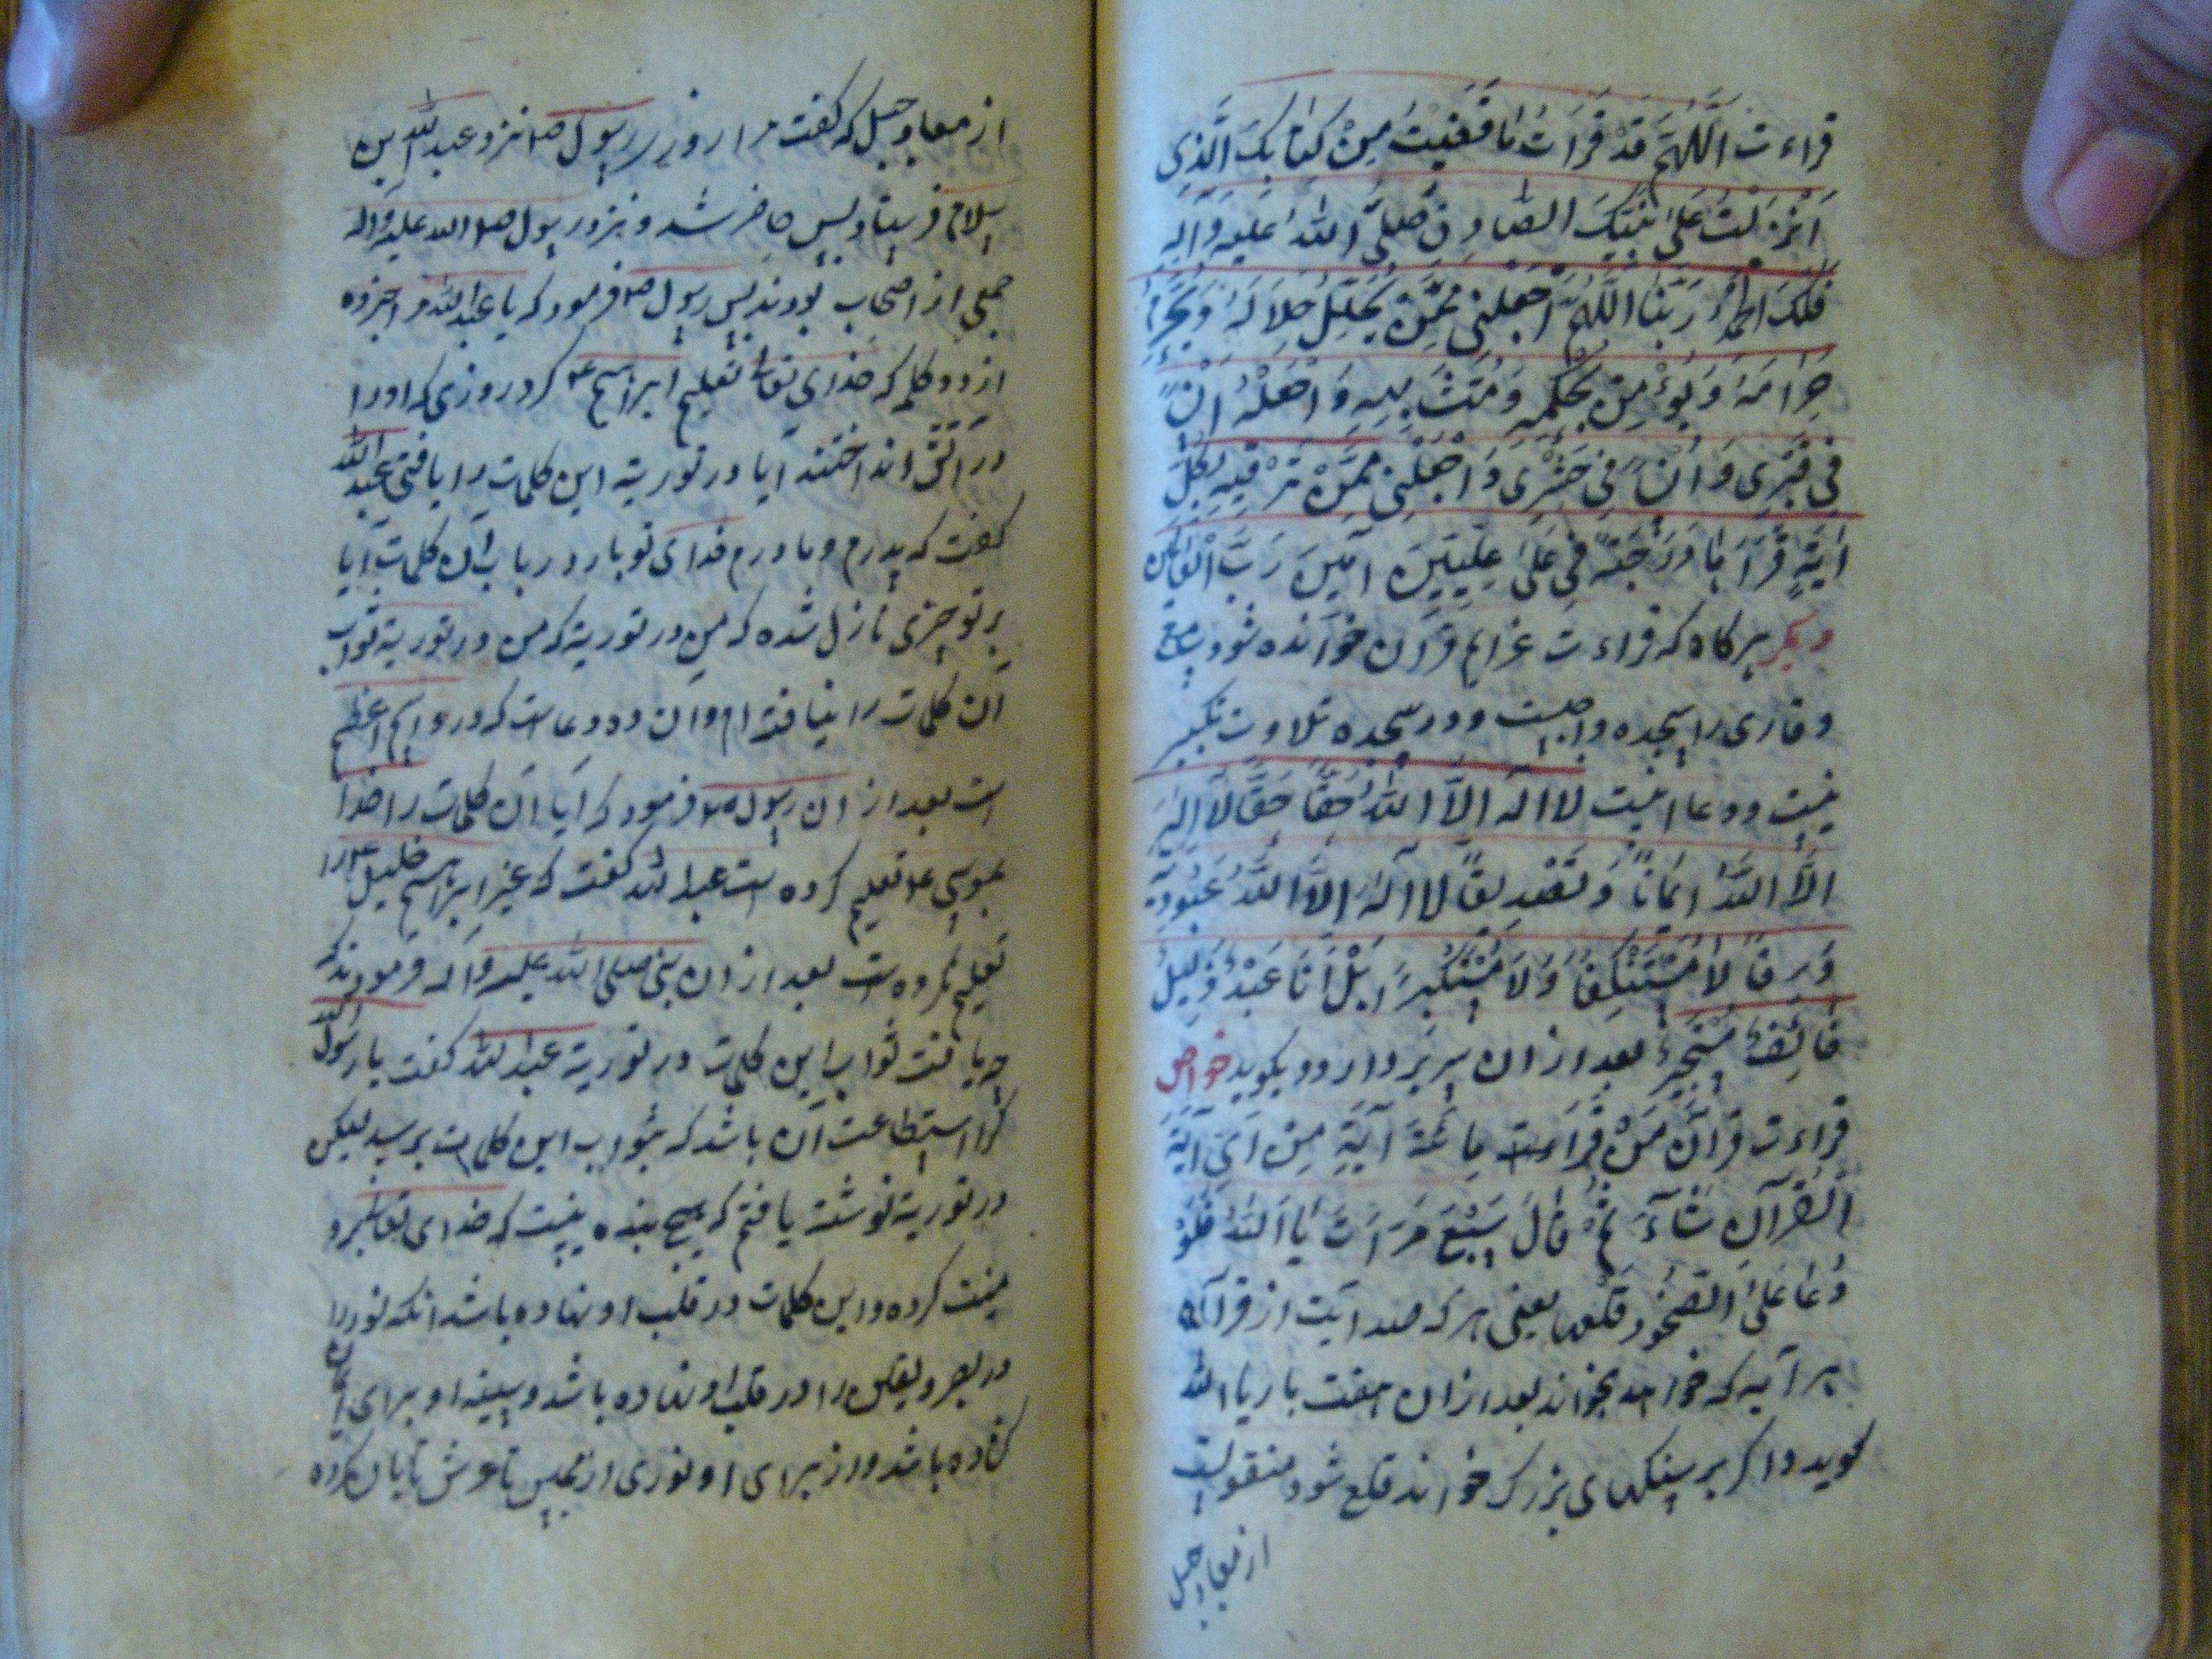 قراءت اَللّهُمَّ قَدْ قَرَاْتُ مٰا قَضَيْتَ مِنْ كِتٰابِكَ الَّذى
اَنْزَلْتَ عَلىٰ نَبِيِّكَ الصّٰادِقِ صَلَّى اللهُ عَلَيهِ وَآلِهِ
فَلَكَ الحَمْدُ رَبَّنٰا اَللّهُمَّ اجْعَلْنى مِمَّنْ يُحَلِّلُ حَلالَهُ وَيُحَرِّمُ
حَرٰامَهُ وَيُؤْمِنُ بِمُحْكَمِهِ وَمُتَشٰابِهِهِ وَاجْعَلْهُ اُنْساً
فِى قَبْرِى وَاُنْساً فِى حَشْرِى وَاجْعَلْنِى مِمَّنْ تُرْقِيهِ بِكُلِّ
اٰيَةٍ قَرَأَهٰا دَرَجَةً فِى عَلىٰ عِلِّيّينَ اٰمينَ رَبَّ الْعٰالمين
ديكر هركاه كه قراءت عزايم قرآن خوانده شود مستمع
و قارى را سجده واجبست و در سجده تلاوت تكبير
نيست و دعا اينست لا اله اِلاَّ اللهُ حَقّاً حَقّاً لا اِلٰهَ
اِلاَّ اللهُ ايمٰاناً وَتَصْديقاً لا اِلٰهَ اِلاَّ اللهُ عُبُودِيَّة
وَرِقّاً لا مُسْتَنْكِفاً وَلا مُسْتَكْبِراً بَلْ اَنَا عَبْدٌ ذَليلٌ
خٰائِفٌ مُسْتَجيرٌ بعد از ان سر بردارد و بكويد خواص
قراءت قرآن مَنْ قَرَاءَ مِائَةَ آيَةٍ مِنْ اَىِّ آيَةِ
الْقُرْآنِ شٰآءَ ثُمَّ قٰالَ سَبْعَ مَرّٰاتٍ يٰا اَللهُ فَلَوْ
دَعٰا عَلَى الصُّخُورِ قَلَعَهٰا يعنى هر كه صد آيت از قرآن
هر آيه كه خواهد بخواند بعد از ان هفت بار يا الله
كويد و اكر بر سنكهاى بزرك خواند قلع شود منقولست
از معاذ جبل
از معاذ جبل كه كفت مرا روزى رسول ص نزد عبدالله بن
سلام فرستاد پس حاضر شد و نزد رسول صلى الله عليه وآله
جمعى از اصحاب بودند پس رسول ص فرمود كه يا عبدالله مرا خبر ده
از ده كلمه كه خداى تعالى تعليم ابراهيم ع كرد روزى كه او را
در آتش انداختند آيا در تورية اين كلمات را يافتى عبدالله
كفت كه پدرم و مادرم فداى تو باد در باب آن كلمات آيا
بر تو چيزى نازل شده كه من در تورية كه من در تورية ثواب
آن كلمات را نيافته ام و ان ده دعاست كه در و اسم اعظم
است بعد از ان رسول ص فرمود كه آيا آن كلمات را خدا
بموسى ع تعليم كرده است عبدالله كفت كه غير ابراهيم خليل ع را
تعليم نكرده است بعد از ان نبى صلى الله عليه وآله فرمودند كه
چه يافت ثواب اين كلمات در تورية عبدالله كفت يا رسول الله
كرا استطاعت آن باشد كه بثواب اين كلمات برسد ليكن
در تورية نوشته يافتم كه هيچ بنده نيست كه خداى تعالى برو
منت كرده و اين كلمات در قلب او نهاده باشد انكه نور را
در بصر و يقين را در قلب او نهاده باشد و سينه او براى ايمان
كشاده باشد و از براى او نورى از مجلس تا عرش تابان كرده